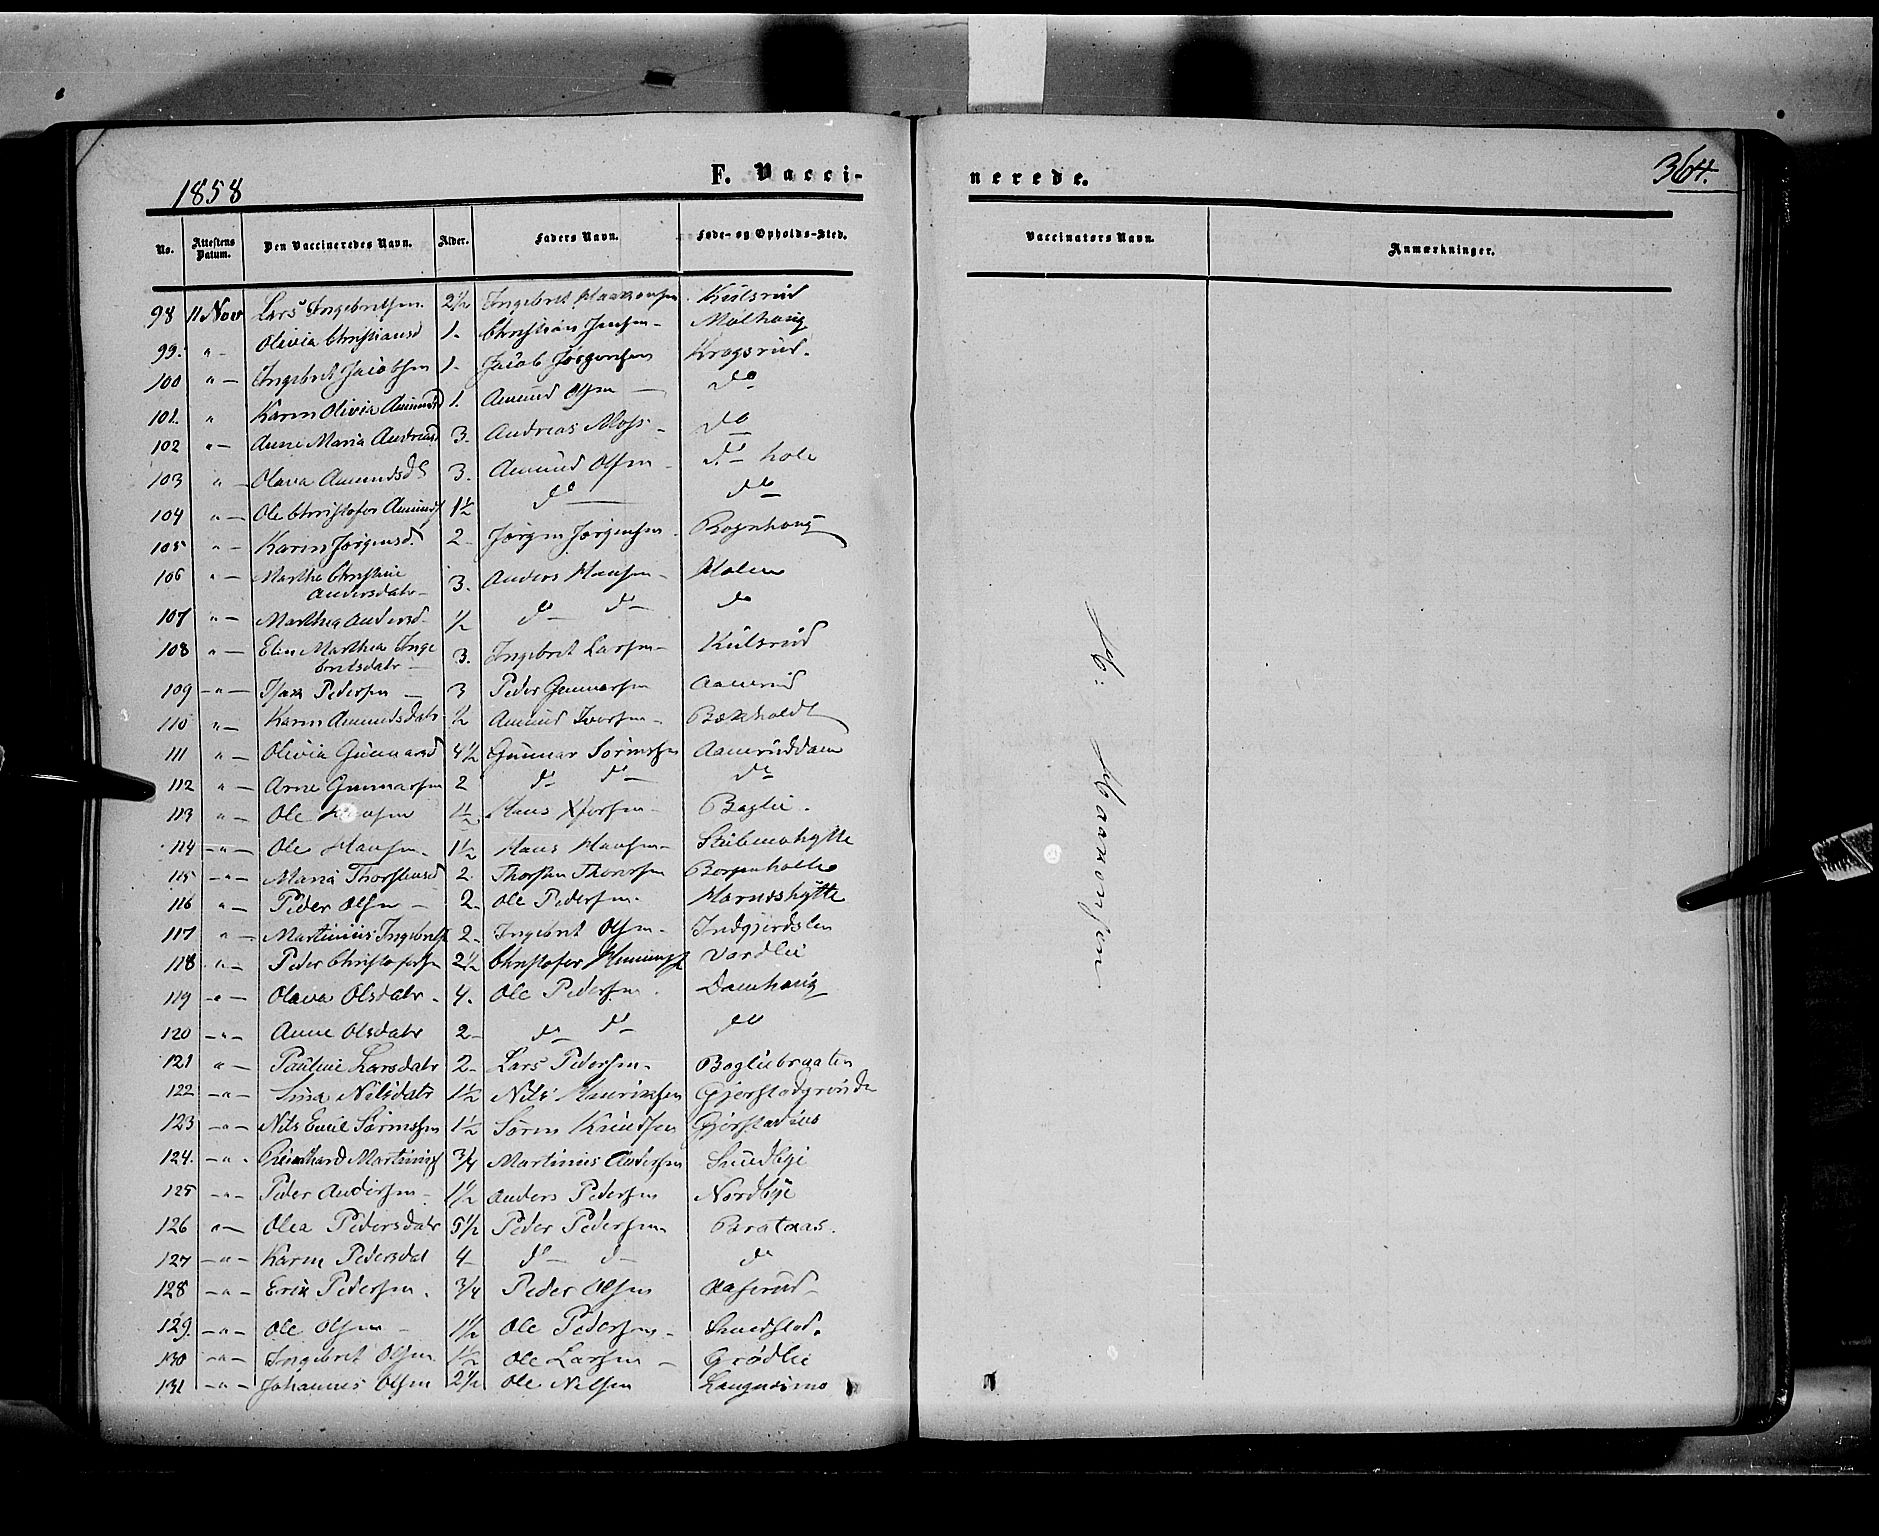 1858
F. Vacci-
nerede.
364.
No. Attestens Datum. Den Vaccineredes Navn. Alder. Faders Navn. Føde- og Opholds-Sted. Vaccinatørs Navn. Anmærkninger.
98 11 Nov Lars Ingebritsen. 2½ Ingebret Haakonsen Kulsrud
99. " - Olivia Christiansd 1. Christian Jensen - Mølhaug
100 " - Ingebret Jacobsen 1- Jacob Jørgensen Kragsrud.
101. " Karen Olivia Amundsd 1. Amund Olsen - do
102 " - Anne Maria Andreasd 3. Andreas Moss - do
103 " - Olava Amundsd 3. Amund Olsen - do hole
104 " - Ole Christofer Amunds 1½ do do
105 " - Karen Jørgensd. 2- Jørgen Jørgensen. Rognhoug
106 " - Marthe Christine
Andersdatr - 3. Anders Hansen - Holen
107 " - Marthea Andersd - ½ do do - do
108 " - Elen Marthea Inge
bretsdatr - 3. Ingebret Larsen - Kulsrud
109 - " - Isax Pedersen - 3 Peder Gunnarsen Aamrud
110 " - Karen Amundsdatr ½ Amund Iversen - Bækholdt
111 " - Olivia Gunnarsd 4½ Gunnar Sørensen Aamruddam
112 " - Arne Gunnarsen 2 do do - do
113 " - Ole Hansen 1½ Hans Xfersen - Baglie.
114 - " - Ole Hansen - 1½ Hans Hansen - Stubenahytte
115 - " - Maria Thorstensd 2. Thorsten Thorersen
116 " - Peder Olsen - 2- Ole Pedersen. Harnæshytte
117 " - Martinius Ingebrets 2- Ingebret Olsen - Indgjerdslen
118 " - Peder Christofersen 2½ Christofer Hennings Vardlie
119 - " - Olava Olsdatr - 4. Ole Pedersen. Damhaug
120 - " - Anne Olsdatr 2- do do - do
121 " - Pauline Larsdatr 2- Lars Pedersen - Bagliebraaten
122 - " - Sina Nilsdatr 1½ Nils Henriksen Gjerstadgrunde
123 - " - Nils Emil Sørensen 1½ Søren Knudsen
124. - " - Martinius 3/4 Martinius Andersen Sundbye
125 - " - Peder Andersen - 1½ Anders Pedersen Nordbye
126 " - Olea Pedersdatr 5½ Peder Pedersen Brataas.
127 - " - Karen Pedersdat 4- do - do - do
128 - " - Erik Pedersen. 3/4 Peder Olsen Aaserud -
129. - " - Ole Olsen - 1½ Ole Pedersen - Smedstad.
130 - " - Ingebret Olsen 1½ Ole Larsen - Grødlie
131 - " - Johannes Olsen 2½ Ole Nilsen Langnæsmo
Haakonsen